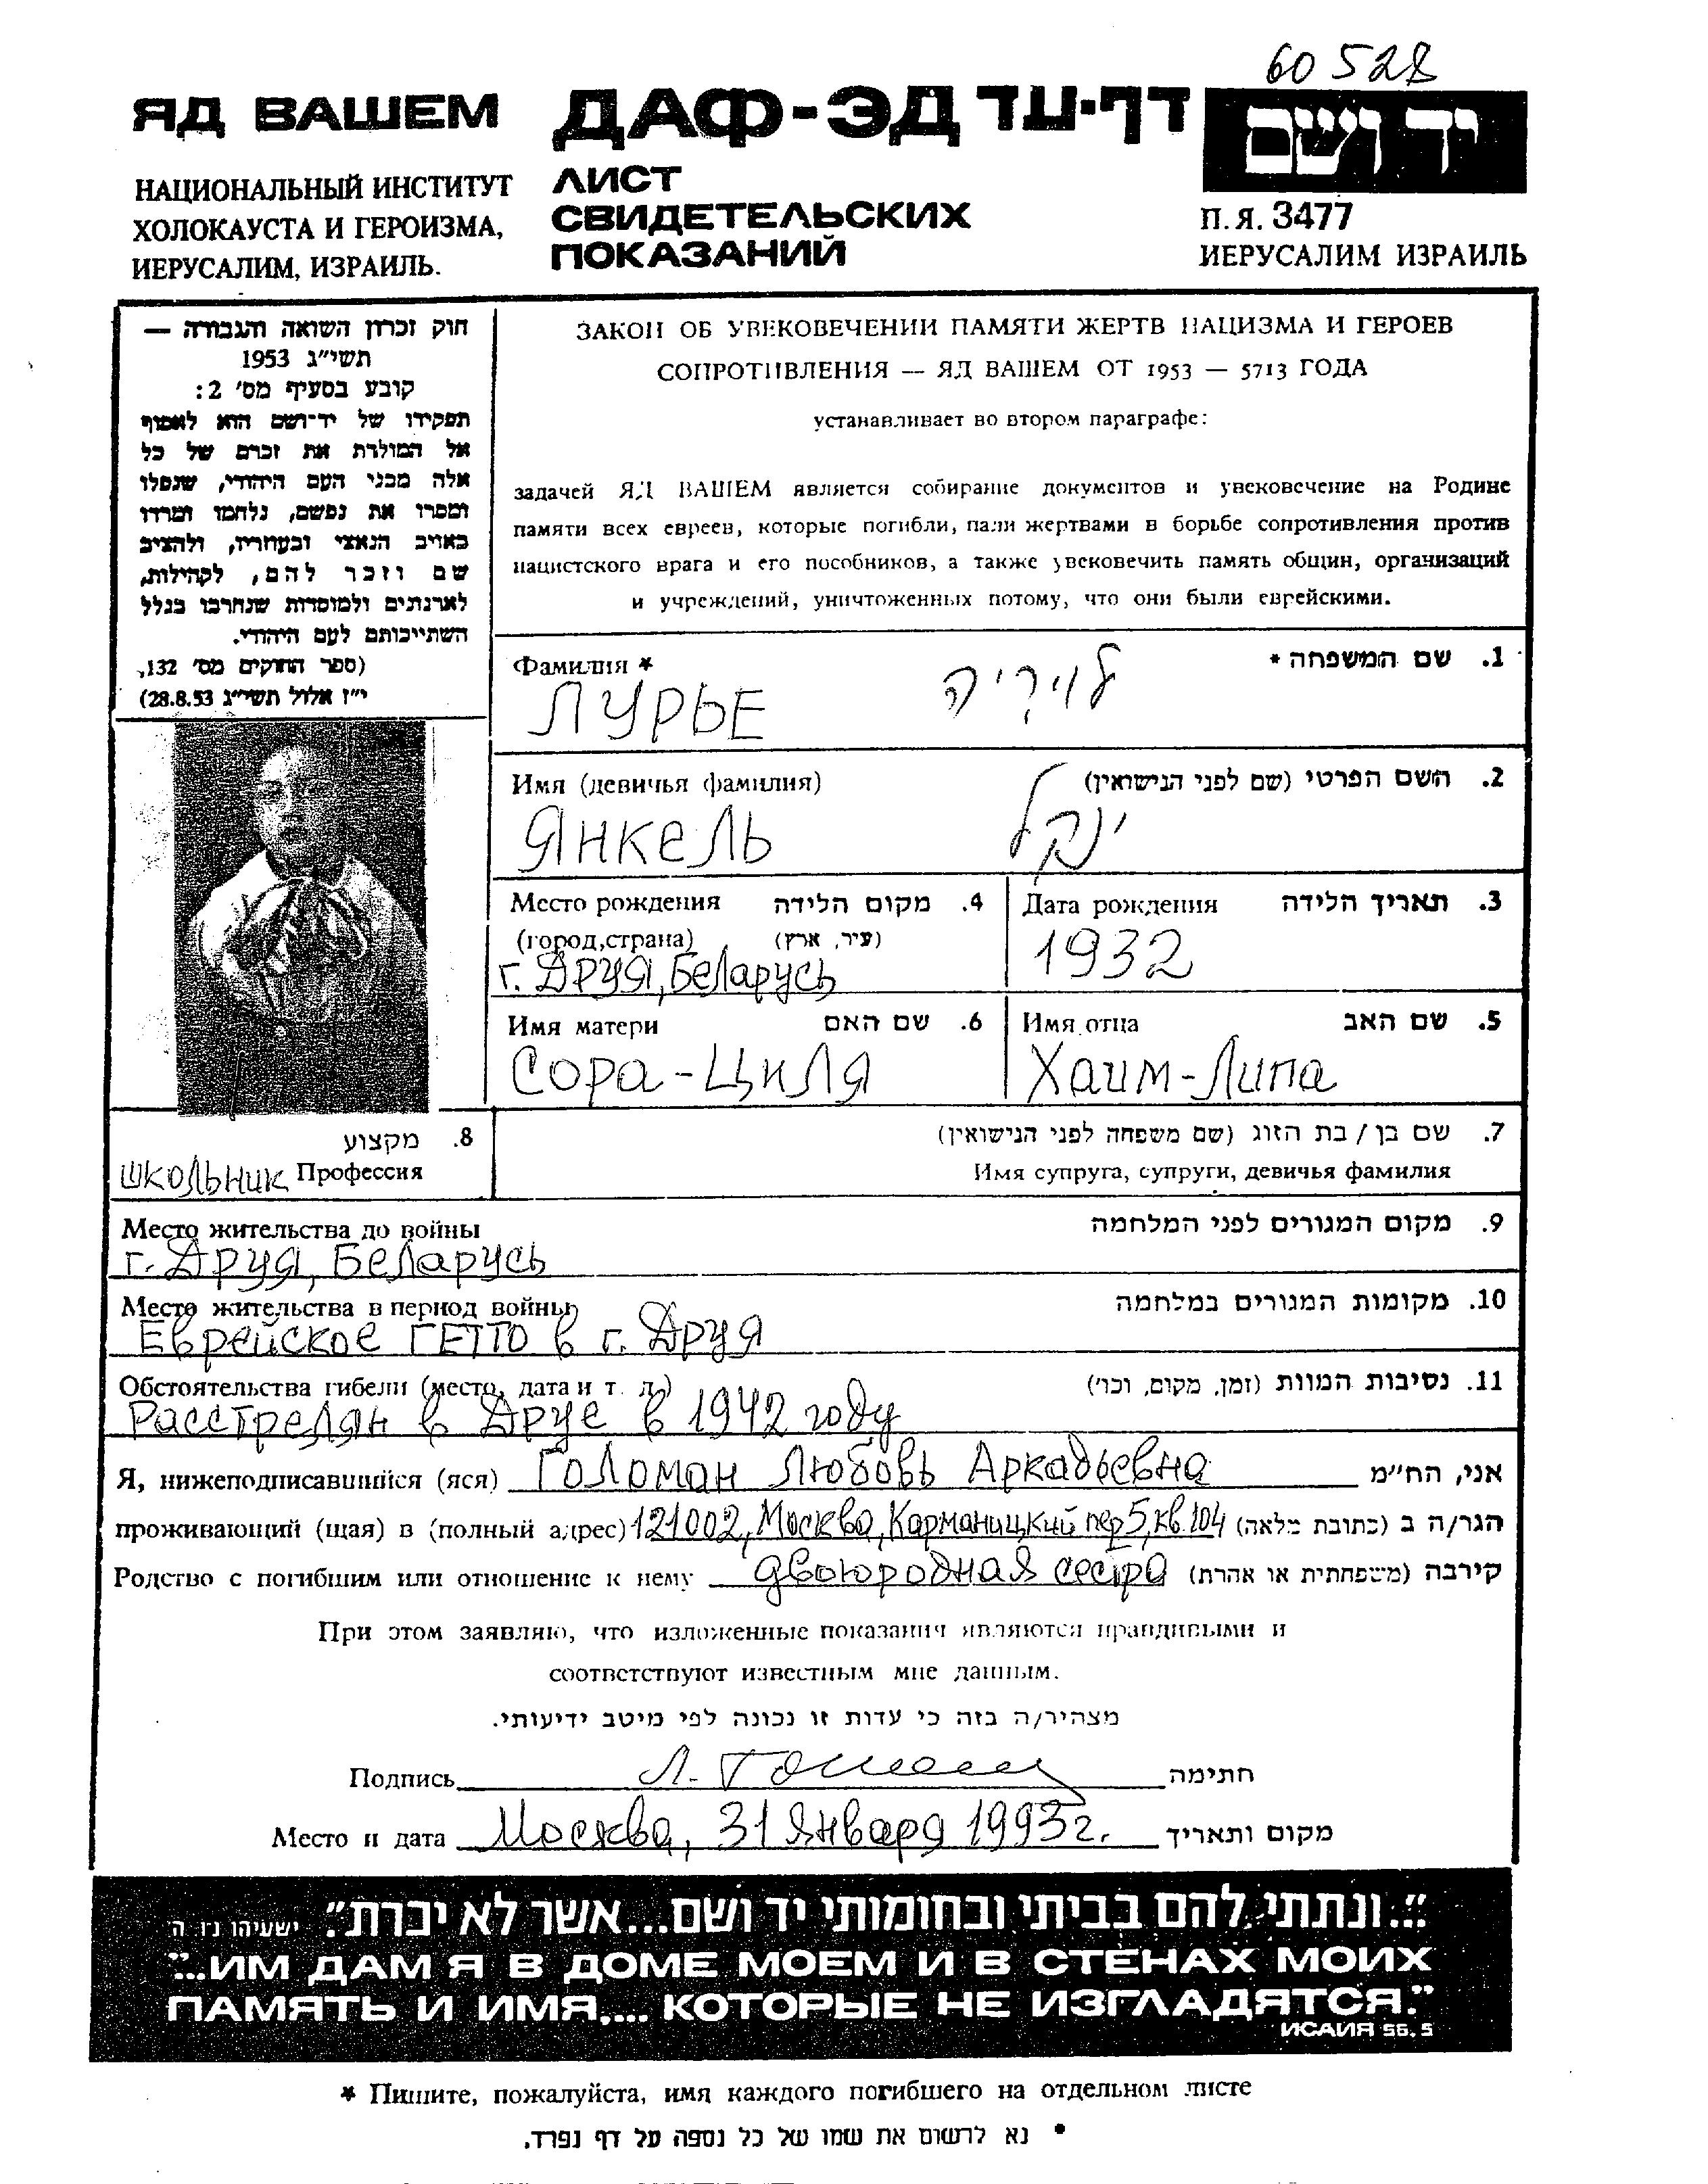 60528
ЯД ВАШЕМ
НАЦИОНАЛЬНЫЙ ИНСТИТУТ
ХОЛОКАУСТА И ГЕРОИЗМА,
ИЕРУСАЛИМ, ИЗРАИЛЬ.
ДАФ-ЭД דף-עד
ЛИСТ
СВИДЕТЕЛЬСКИХ
ПОКАЗАНИЙ
יד ושם
П.Я. 3477
ИЕРУСАЛИМ ИЗРАИЛЬ
חוק זכרון השואה והגבורה —
תשי"ג 1953
קובע בסעיף מס' 2:
תפקידו של יד-ושם הוא לאסוף
אל המולדת את זכרם של כל
אלה מבני העם היהודי, שנפלו
ומסרו את נפשם, נלחמו ומרדו
באויב הנאצי ובעוזריו, ולהציב
שם וזכר להם, לקהילות,
לארגונים ולמוסדות שנחרבו בגלל
השתייכותם לעם היהודי.
(ספר החוקים מס' 132,
י"ז אלול תשי"ג 28.8.53)
ЗАКОН ОБ УВЕКОВЕЧЕНИИ ПАМЯТИ ЖЕРТВ НАЦИЗМА И ГЕРОЕВ
СОПРОТИВЛЕНИЯ — ЯД ВАШЕМ ОТ 1953 — 5713 ГОДА
устанавливает во втором параграфе:
задачей ЯД ВАШЕМ является собирание документов и увековечение на Родине
памяти всех евреев, которые погибли, пали жертвами в борьбе сопротивления против
нацистского врага и его пособников, а также увековечить память общин, организаций
и учреждений, уничтоженных потому, что они были еврейскими.
Фамилия * 1. שם המשפחה *
ЛУРЬЕ לוריה
Имя (девичья фамилия) 2. השם הפרטי (שם לפני הנישואין)
ЯНКЕЛЬ ינקל
Место рождения 4. מקום הלידה
(город,страна) (עיר, ארץ)
г. Друя, Беларусь
Дата рождения 3. תאריך הלידה
1932
Имя матери 6. שם האם
Сора-Циля
Имя отца 5. שם האב
Хаим-Липа
8. מקצוע
школьник Профессия
7. שם בן / בת הזוג (שם משפחה לפני הנישואין)
Имя супруга, супруги, девичья фамилия
Место жительства до войны 9. מקום המגורים לפני המלחמה
г. Друя, Беларусь
Место жительства в период войны 10. מקומות המגורים במלחמה
Еврейское ГЕТТО в г. Друя
Обстоятельства гибели (место, дата и т. д.) 11. נסיבות המוות (זמן, מקום, וכו')
Расстрелян в Друе в 1942 году
Я, нижеподписавшийся (яся) Голоман Любовь Аркадьевна אני, הח"מ
проживающий (щая) в (полный адрес) 121002, Москва, Карманицкий пер 5, кв. 104 הגר/ה ב (כתובת מלאה)
Родство с погибшим или отношение к нему двоюродная сестра קירבה (משפחתית או אחרת)
При этом заявляю, что изложенные показания являются правдивыми и
соответствуют известным мне данным.
מצהיר/ה בזה כי עדות זו נכונה לפי מיטב ידיעותי.
Подпись חתימה
Место и дата Москва, 31 января 1993г. מקום ותאריך
"...ונתתי להם בביתי ובחומותי יד ושם...אשר לא יכרת". ישעיהו נ"ו ה
"...ИМ ДАМ Я В ДОМЕ МОЕМ И В СТЕНАХ МОИХ
ПАМЯТЬ И ИМЯ,... КОТОРЫЕ НЕ ИЗГЛАДЯТСЯ."
ИСАИЯ 56. 5
* Пишите, пожалуйста, имя каждого погибшего на отдельном листе
* נא לרשום את שמו של כל נספה על דף נפרד.